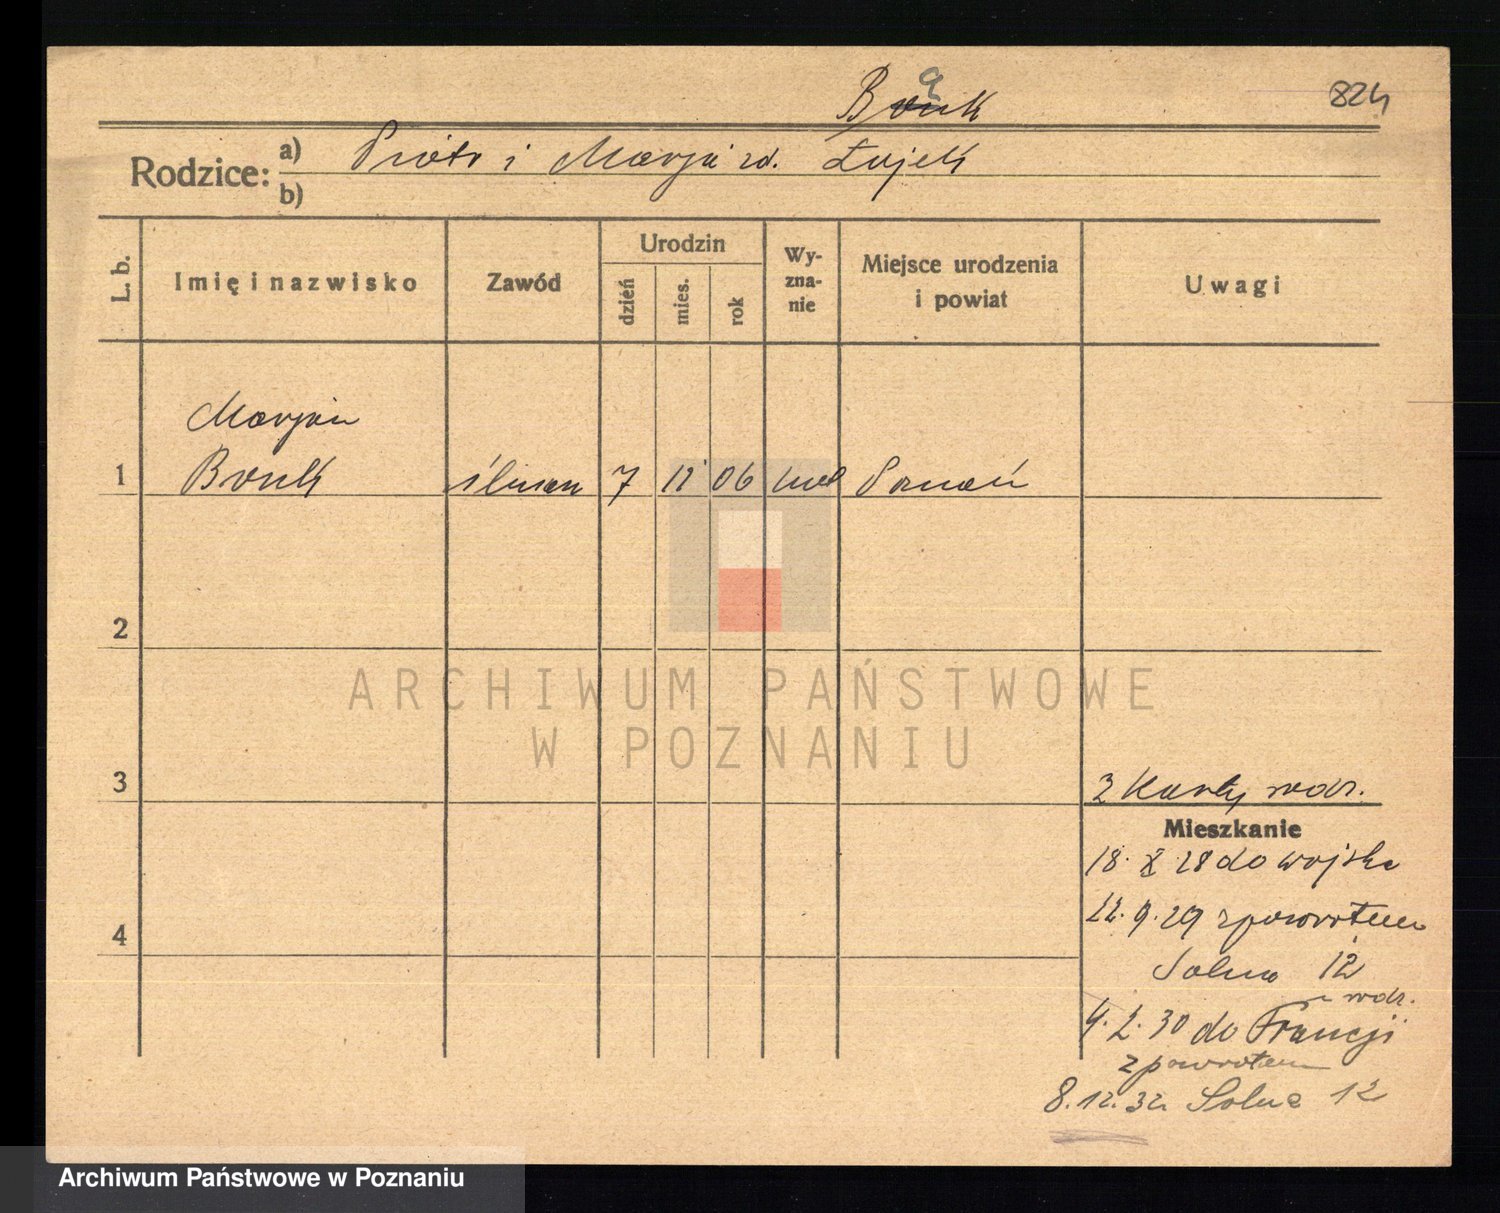 ą
Bonk
824
Rodzice: a) Piotr i Marja zd. Łojek
b)
L. b.
Imię i nazwisko
Zawód
Urodzin
dzień
mies.
rok
Wy-
zna-
nie
Miejsce urodzenia
i powiat
Uwagi
Marjan
1 Bonk ślusarz 7 11 06 kat Poznań
2
3
2 Karty rodz.
Mieszkanie
18. X 28 do wojska
4
22. 9. 29 z powrotem
Solna 12
rodz.
4. 2. 30 do Francji
z powrotem
8. 12. 32 Solna 12
ARCHIWUM PAŃSTWOWE
W POZNANIU
Archiwum Państwowe w Poznaniu